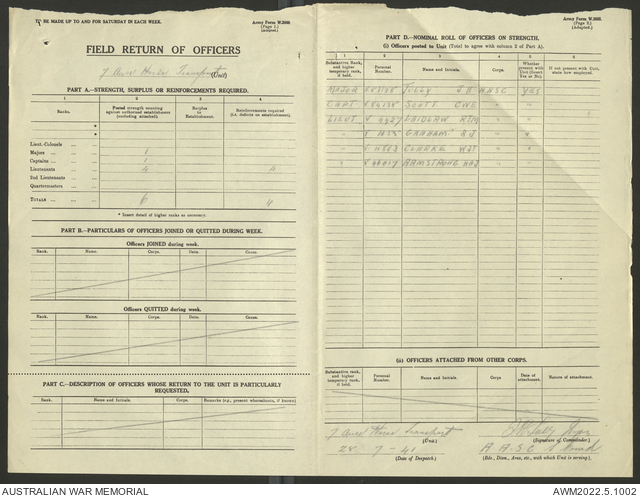 TO BE MADE UP TO AND FOR SATURDAY IN EACH WEEK.
Army Form W.3008.
(Page 1.)
(Adapted.)
FIELD RETURN OF OFFICERS
(Unit)
PART A.—STRENGTH, SURPLUS OR REINFORCEMENTS REQUIRED.
1 2 3 4
Ranks. Posted strength counting against authorised establishment (excluding attached). Surplus to Establishment. Reinforcements required (i.e. deficits on establishment).
*
*
Lieut.-Colonels
Majors 1
Captains 1
Lieutenants 4 4
2nd Lieutenants
Quartermasters
TOTALS 6 4
* Insert detail of higher ranks as necessary.
PART B.—PARTICULARS OF OFFICERS JOINED OR QUITTED DURING WEEK.
Officers JOINED during week.
Rank. Name. Corps. Date. Cause.
Officers QUITTED during week.
Rank. Name. Corps. Date. Cause.
PART C.—DESCRIPTION OF OFFICERS WHOSE RETURN TO THE UNIT IS PARTICULARLY REQUESTED.
Rank. Name and Initials. Corps. Remarks (e.g., present whereabouts, if known)
Army Form W.3008.
(Page 2.)
(Adapted.)
PART D.—NOMINAL ROLL OF OFFICERS ON STRENGTH.
(i) Officers posted to Unit (Total to agree with column 2 of Part A).
1 2 3 4 5 6
Substantive Rank, and higher temporary rank, if held. Personal Number. Name and Initials. Corps. Whether present with Unit (Insert Yes or No). If not present with Unit, state how employed.
MAJOR TULLY AASC YES
CAPT SCOTT " "
LIEUT LAIDLAW " "
" GRAHAM " "
" CLARKE " "
" ARMSTRONG " "
(ii) OFFICERS ATTACHED FROM OTHER CORPS.
Substantive Rank, and higher temporary rank, if held. Personal Number. Name and Initials. Corps. Date of attachment. Nature of attachment.
(Unit) (Signature of Commander.)
28 - 7 - 41 A A S C
(Date of Despatch.) (Bde., Divn., Area, etc., with which Unit is serving).
AUSTRALIAN WAR MEMORIAL
AWM2022.5.1002